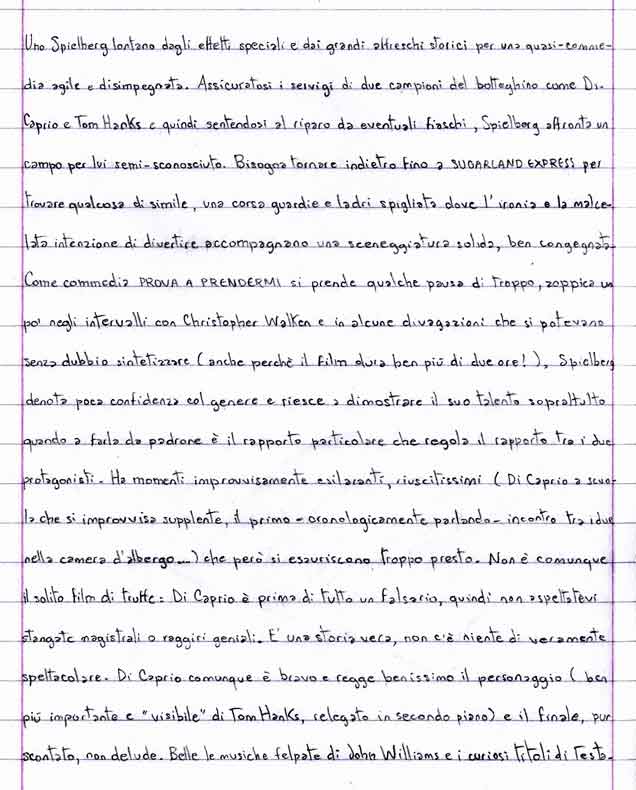 Uno Spielberg lontano dagli effetti speciali e dai grandi affreschi storici per una quasi-comme-
dia agile e disimpegnata. Assicuratosi i servigi di due campioni del botteghino come Di-
Caprio e Tom Hanks e quindi sentendosi al riparo da eventuali fiaschi, Spielberg affronta un
campo per lui semi-sconosciuto. Bisogna tornare indietro fino a SUGARLAND EXPRESS per
trovare qualcosa di simile, una corsa guardie e ladri spigliata dove l'ironia e la malce-
lata intenzione di divertire accompagnano una sceneggiatura solida, ben congegnata.
Come commedia PROVA A PRENDERMI si prende qualche pausa di troppo, zoppica un
po' negli intervalli con Christopher Walken e in alcune divagazioni che si potevano
senza dubbio sintetizzare (anche perchè il film dura ben più di due ore!), Spielberg
denota poca confidenza col genere e riesce a dimostrare il suo talento soprattutto
quando a farla da padrone è il rapporto particolare che regola il rapporto tra i due
protagonisti. Ha momenti improvvisamente esilaranti, riuscitissimi (Di Caprio a scuo-
la che si improvvisa supplente, il primo - cronologicamente parlando - incontro tra i due
nella camera d'albergo...) che però si esauriscono troppo presto. Non è comunque
il solito film di truffe: Di Caprio è prima di tutto un falsario, quindi non aspettatevi
stangate magistrali o raggiri geniali. E' una storia vera, non c'è niente di veramente
spettacolare. Di Caprio comunque è bravo e regge benissimo il personaggio (ben
più importante e "visibile" di Tom Hanks, relegato in secondo piano) e il finale, pur
scontato, non delude. Belle le musiche felpate di John Williams e i curiosi titoli di testa.